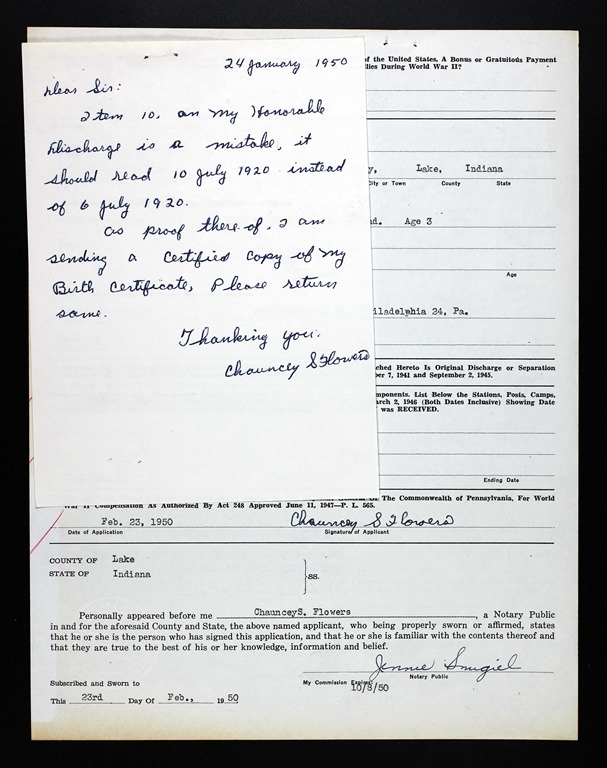 24 January 1950
Dear Sir:
Item 10. on my Honorable
Discharge is a mistake, it
should read 10 July 1920 instead
of 6 July 1920.
as proof there of. I am
sending a Certified Copy of my
Birth Certificate, Please return
same.
Thanking you.
Chauncey S Flowers
of the United States. A Bonus or Gratuitous Payment
lies During World War II?
y, Lake, Indiana
City or Town County State
d. Age 3
Age
iladelphia 24, Pa.
ched Hereto Is Original Discharge or Separation
ber 7, 1941 and September 2, 1945.
mponents. List Below the Stations, Posts, Camps,
arch 2, 1946 (Both Dates Inclusive) Showing Date
was RECEIVED.
Ending Date
The Commonwealth of Pennsylvania, For World
War II Compensation As Authorized By Act 248 Approved June 11, 1947—P. L. 565.
Feb. 23, 1950 Chauncey S Flowers
Date of Application Signature of Applicant
COUNTY OF Lake
STATE OF Indiana
ss.
Personally appeared before me ChaunceyS. Flowers, a Notary Public
in and for the aforesaid County and State, the above named applicant, who being properly sworn or affirmed, states
that he or she is the person who has signed this application, and that he or she is familiar with the contents thereof and
that they are true to the best of his or her knowledge, information and belief.
Jennie Smigiel
Notary Public
Subscribed and Sworn to My Commission Expires 10/8/50
This 23rd Day Of Feb., 19 50